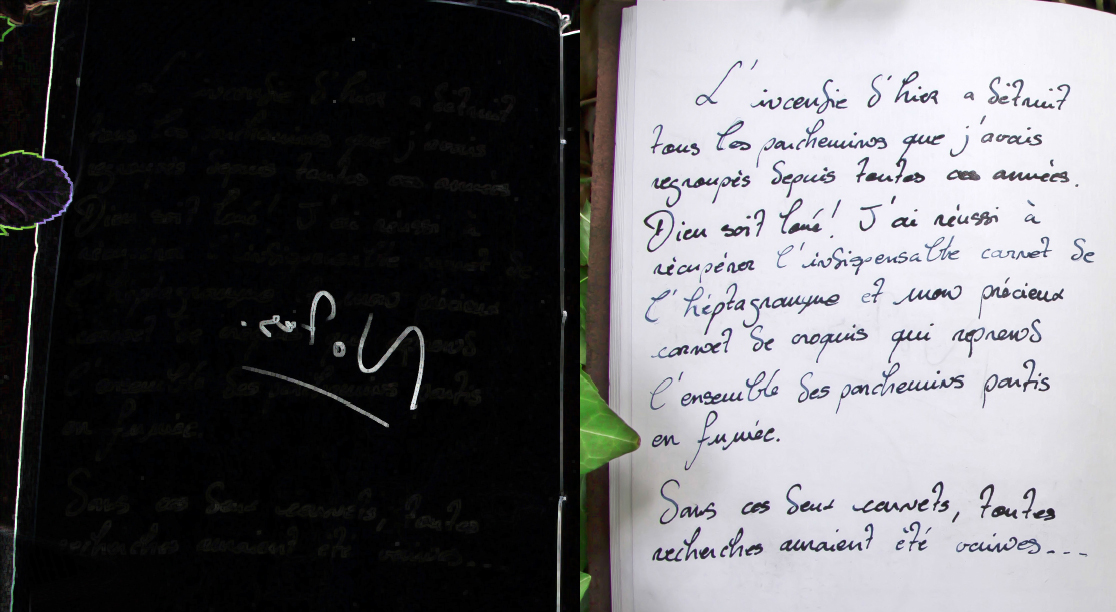 L'incendie d'hier a détruit
tous les parchemins que j'avais
regroupés depuis toutes ces années.
Dieu soit loué! J'ai réussi à
récupérer l'indispensable carnet de
l'héptagramme et mon précieux
carnet de croquis qui reprends
l'ensemble des parchemins partis
en fumée.
Sans ces deux carnets, toutes
recherches auraient été vaines...